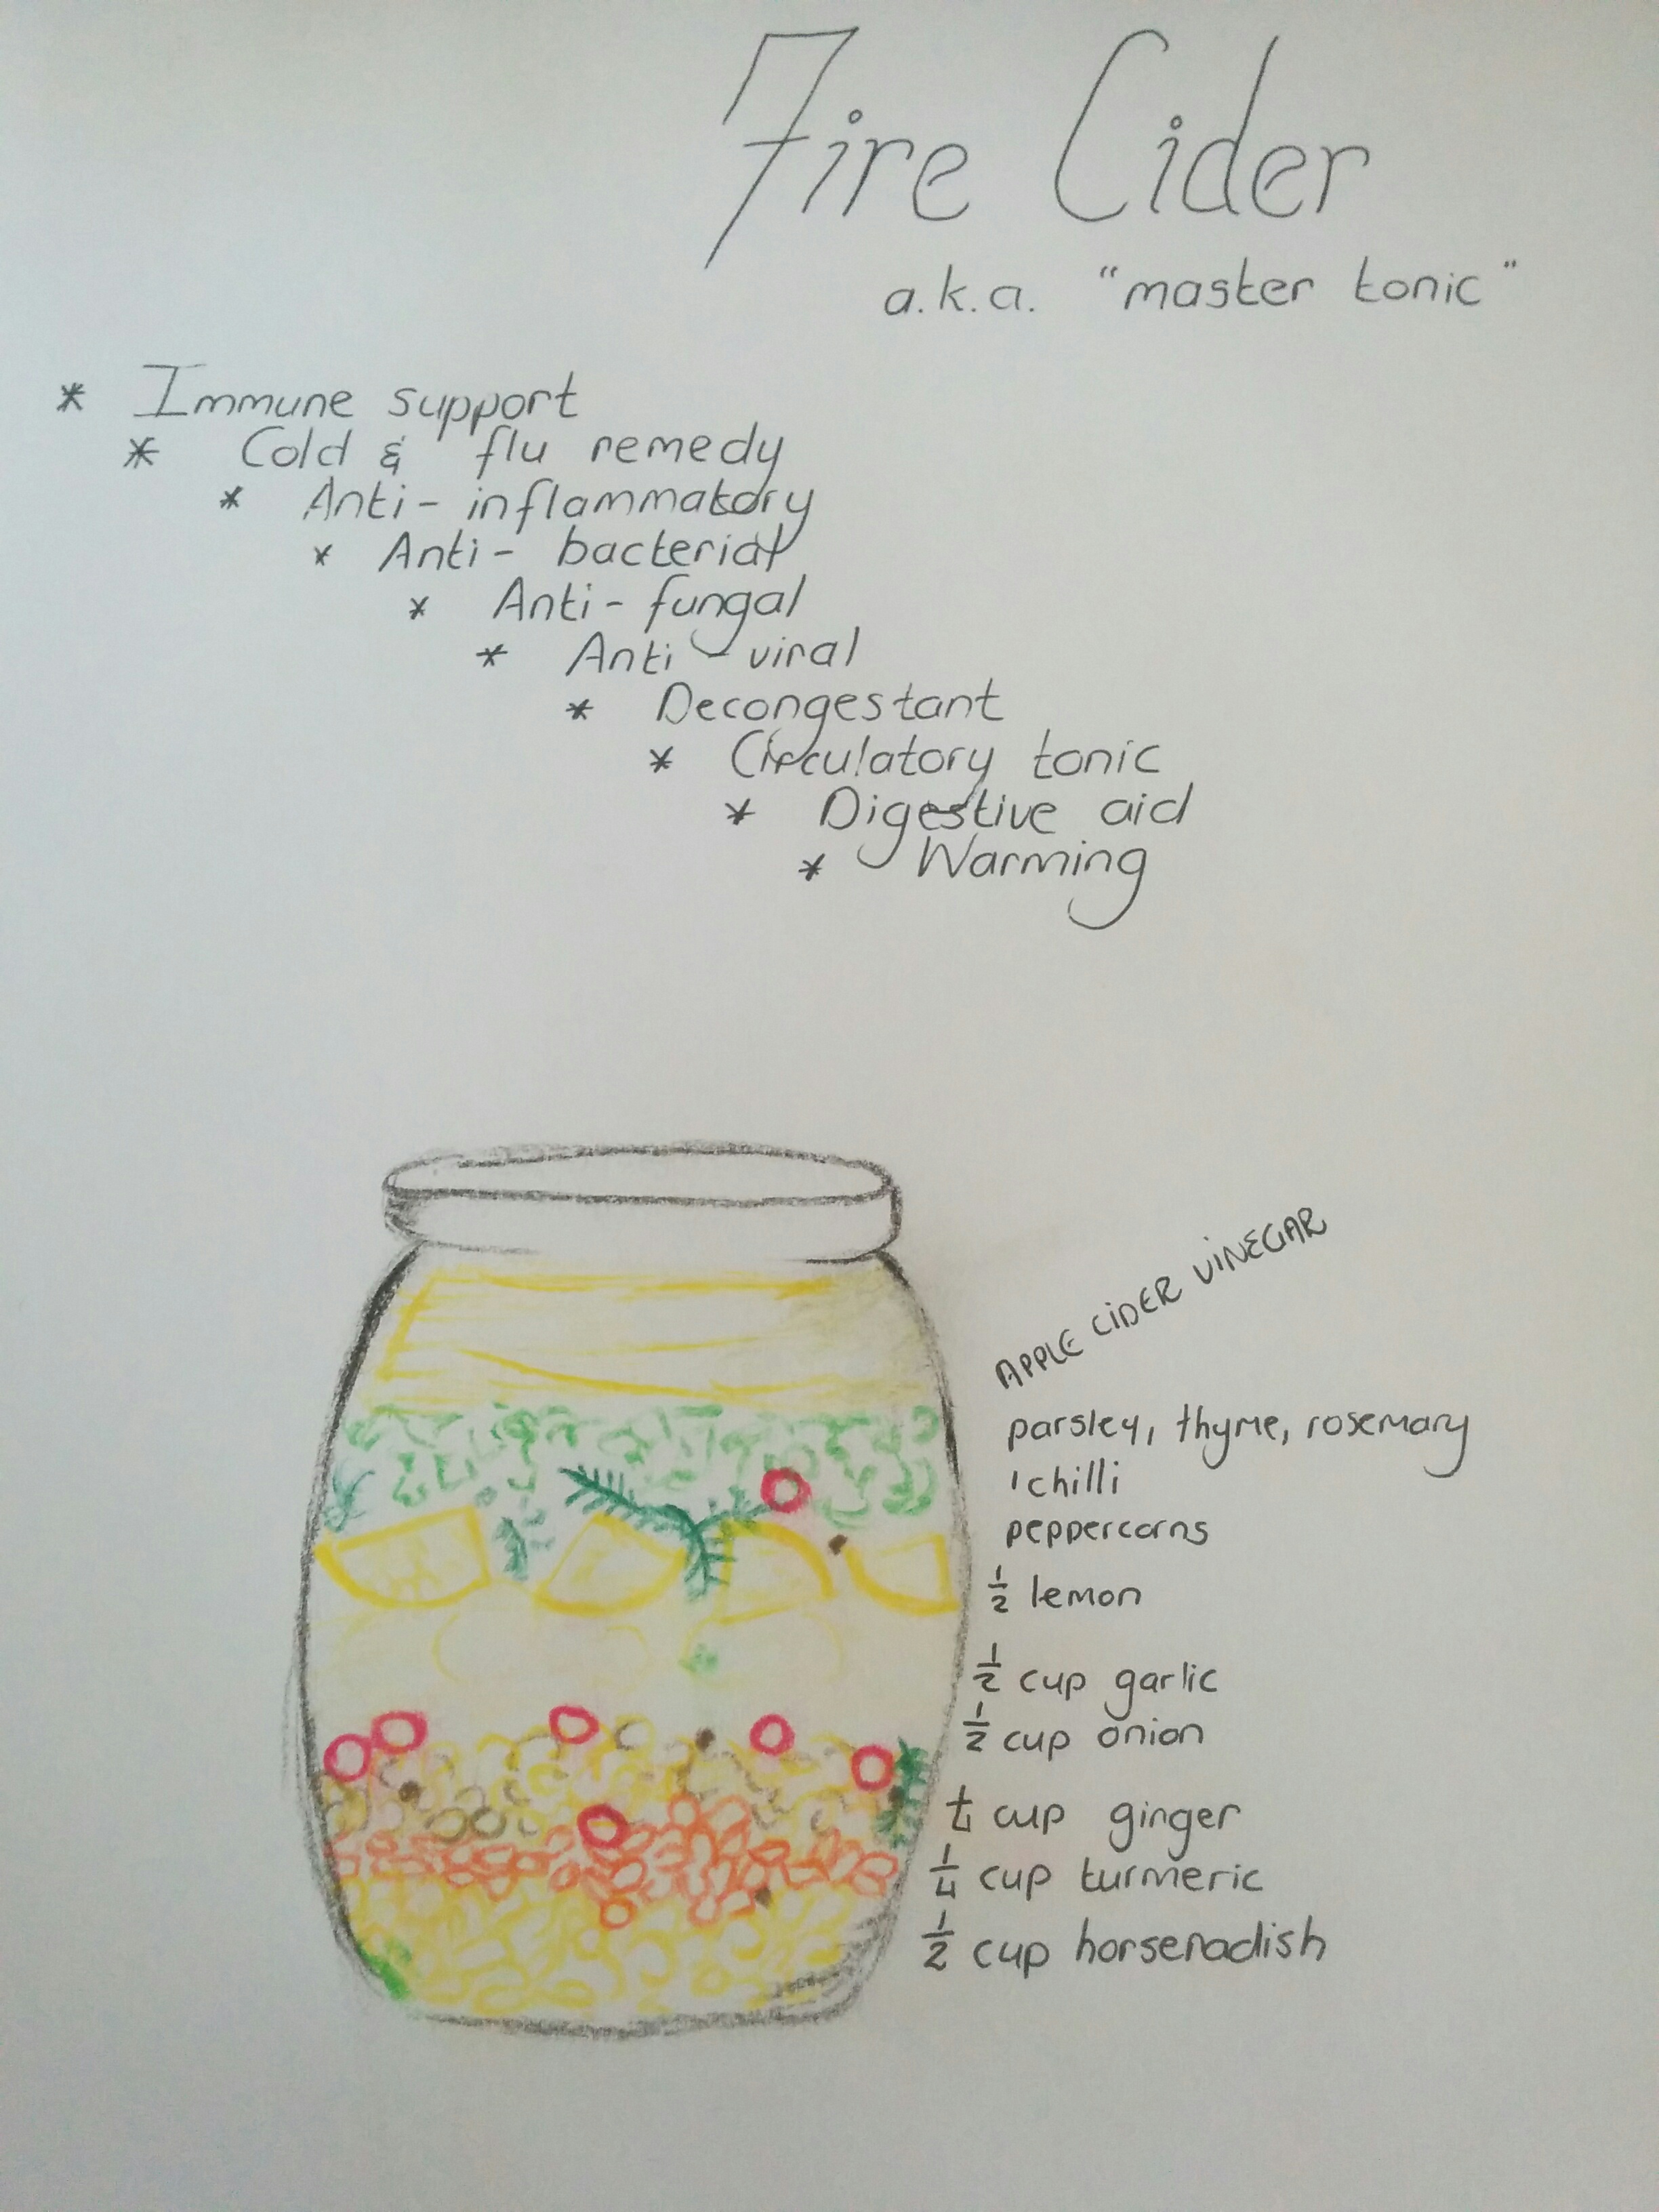 Fire Cider
a.k.a. "master tonic"
* Immune support
* Cold & flu remedy
* Anti-inflammatory
* Anti-bacterial
* Anti-fungal
* Anti-viral
* Decongestant
* Circulatory tonic
* Digestive aid
* Warming
APPLE CIDER VINEGAR
parsley, thyme, rosemary
1 chilli
peppercorns
½ lemon
½ cup garlic
½ cup onion
¼ cup ginger
¼ cup turmeric
½ cup horseradish